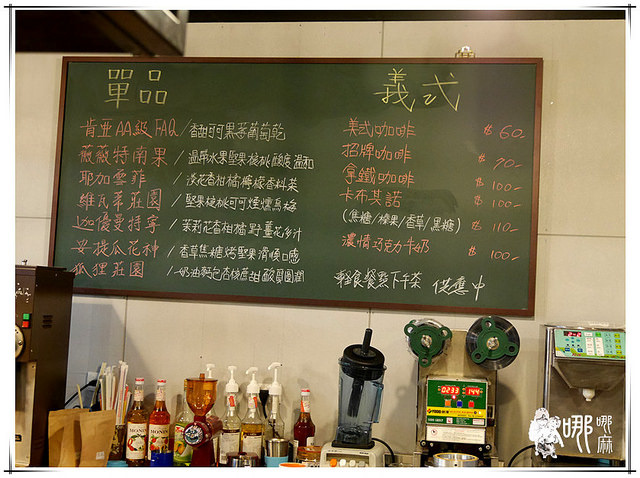 單品
肯亞AA級FAQ/香甜可可黑莓葡萄乾
薇薇特南果/溫帶水果堅果核桃酸度溫和
耶加雪菲/淡花香柑橘檸檬香料茶
維瓦茶莊園/堅果核桃可可煙燻烏梅
迦優曼特寧/茉莉花香柑橘野薑花多汁
安提瓜花神/香草焦糖烤堅果滑順口感
狐狸莊園/奶油麵包杏桃香甜酸質圓潤
義式
美式咖啡 $60-
招牌咖啡 $90-
拿鐵咖啡 $100-
卡布其諾 $100-
(焦糖/榛果/香草/黑糖) $110-
濃情巧克力牛奶 $100-
輕食餐點下午茶 供應中
MONIN
MONIN
0233 144
哪
哪
麻